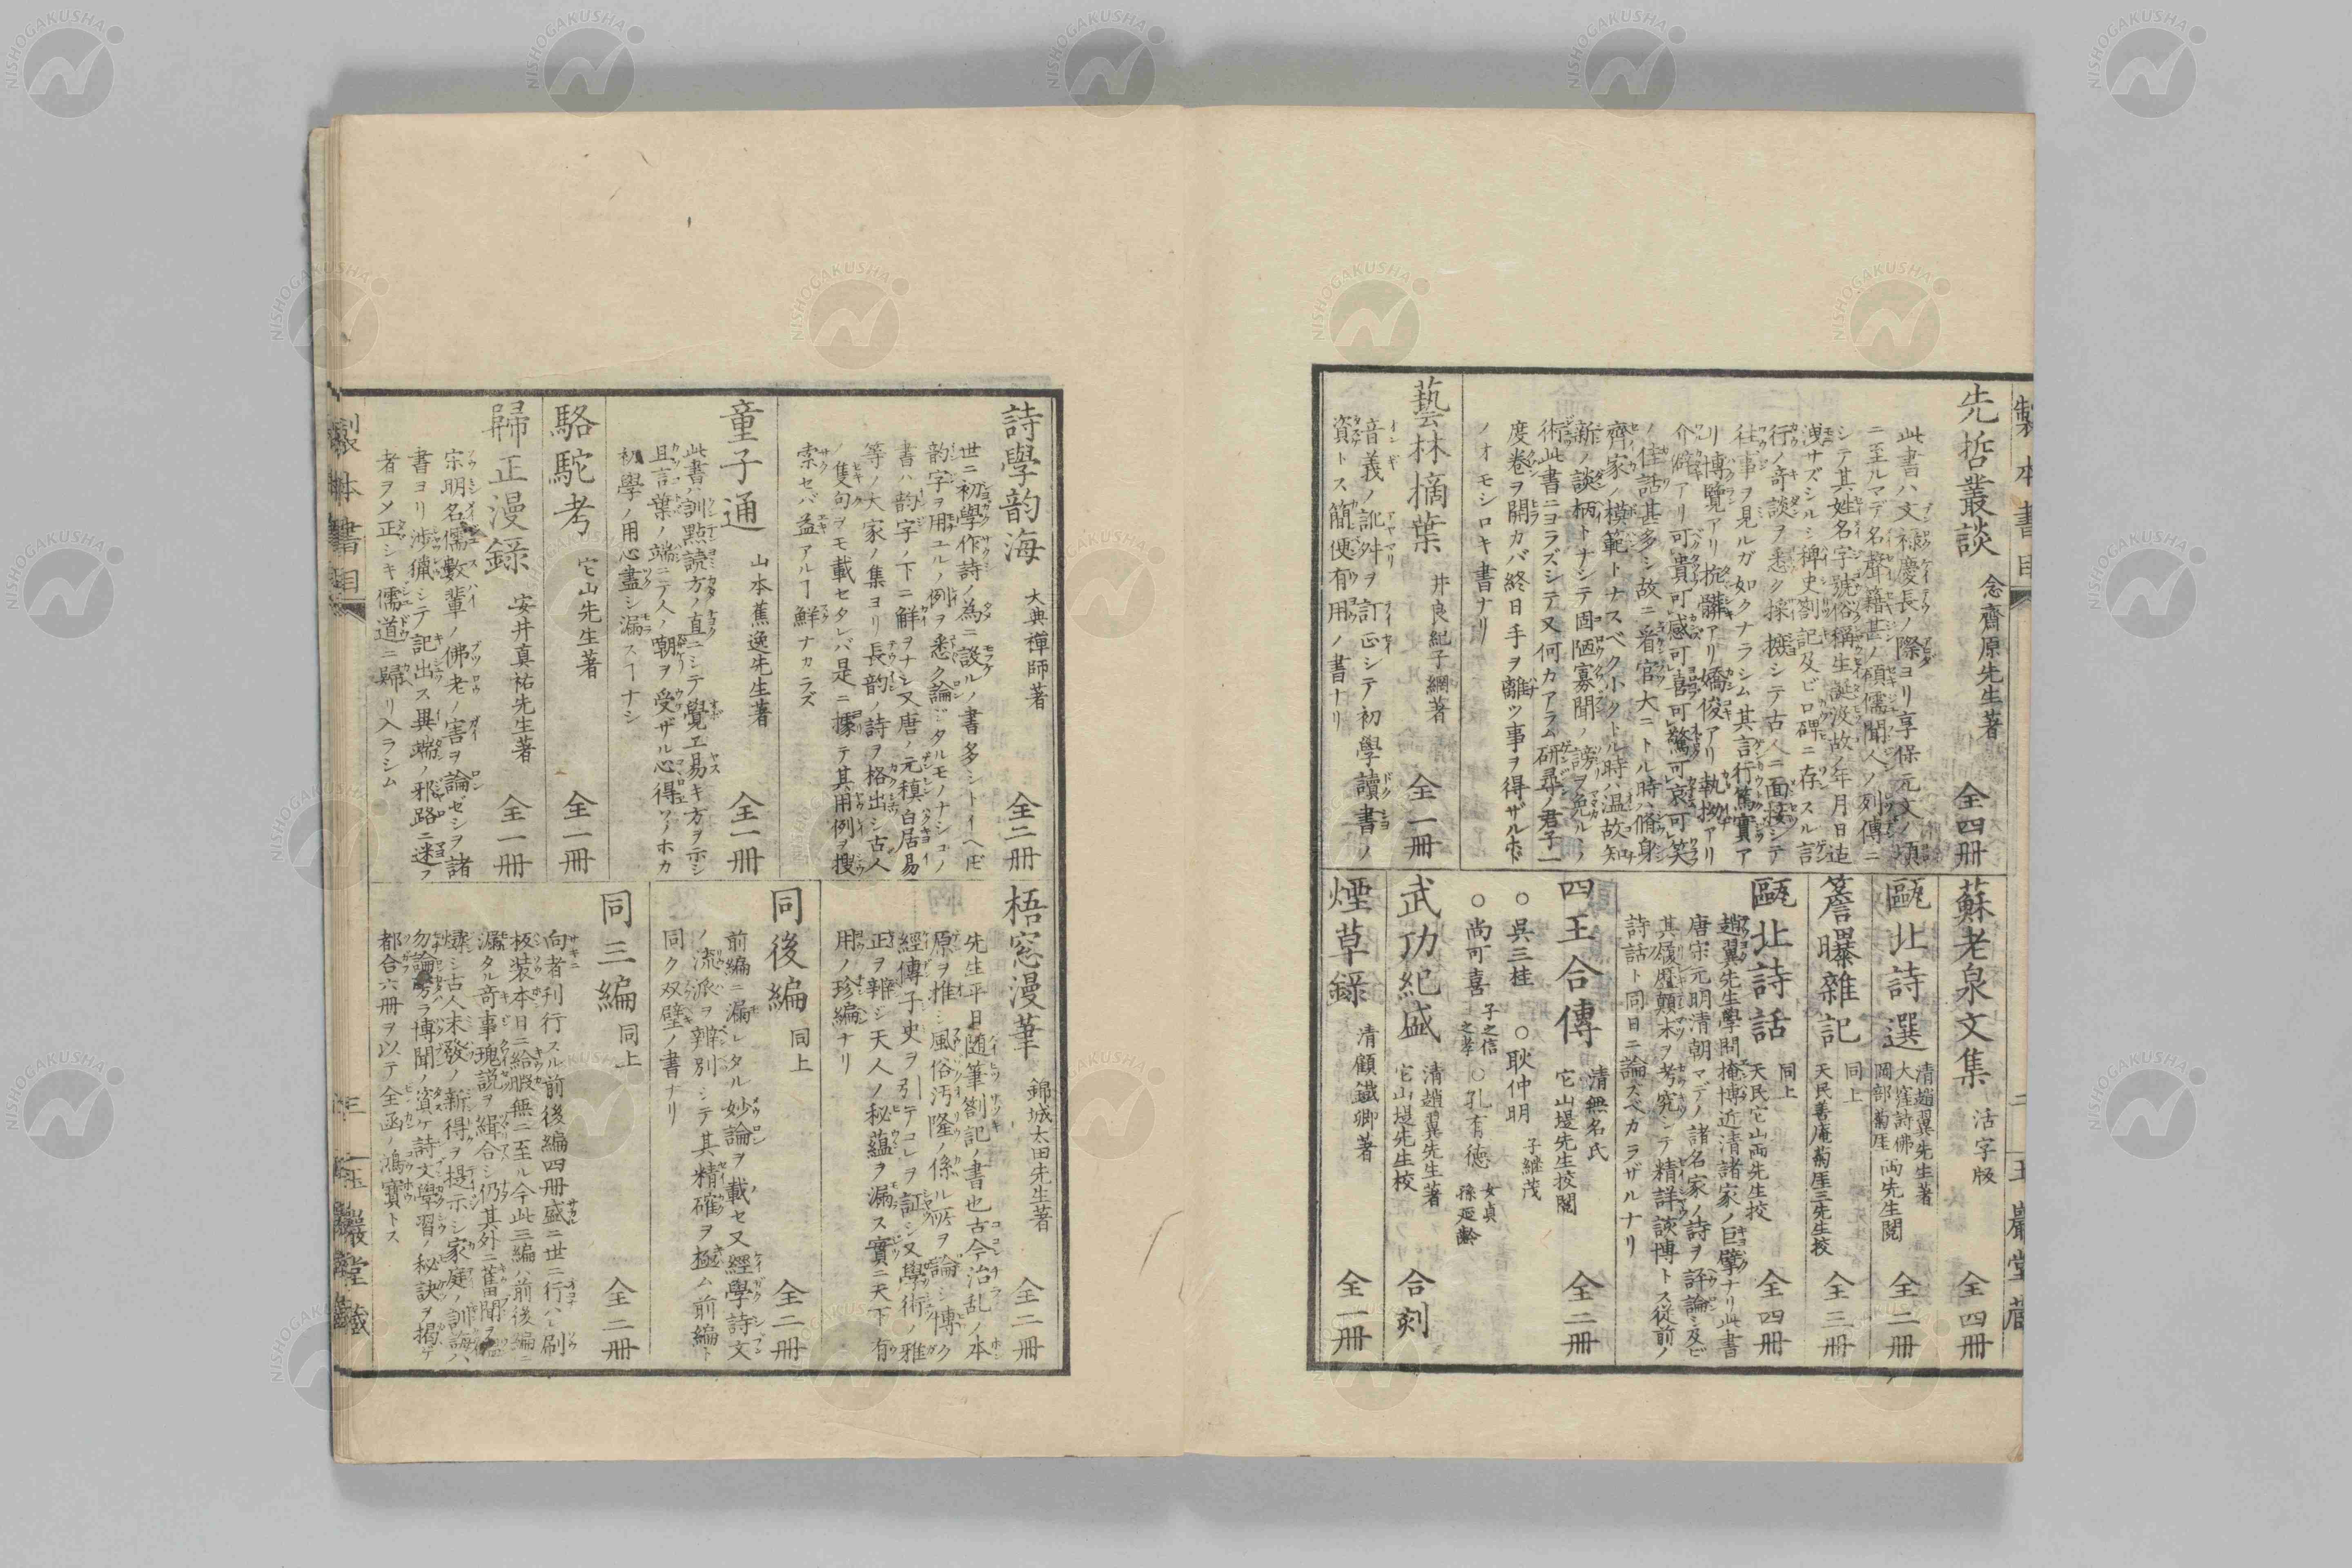 製本書目
二
玉巖堂藏
先哲叢談 念齋原先生著 全四冊
此書ハ文禄慶長ノ際ヨリ享保元文ノ頃
ニ至ルマデ名聲籍甚ノ碩儒聞人ノ列傳ニ
シテ其姓名字號俗稱生誕没故ノ年月日迄
洩サズシルシ稗史劄記及ビ口碑ニ存スル言
行ノ奇談ヲ悉ク採摭シテ古人ニ面接シテ
往事ヲ見ルガ如クナラシム其言行篤實ア
リ博覽アリ骯髒アリ矯俊アリ執拗アリ
介僻アリ可貴可感可喜可驚可哀可笑
ノ佳話甚多シ故ニ看官大ニトル時ハ脩身
齊家ノ模範トナスベク小クトル時ハ温故知
新ノ談柄トナシテ固陋寡聞ノ謗ヲ免ルヽノ
術此書ニヨラズシテ又何カアラム研尋ノ君子一
度卷ヲ開カバ終日手ヲ離ツ事ヲ得ザルホド
ノオモシロキ書ナリ
藝林摘葉 井良紀子綱著 全一冊
音義ノ訛舛ヲ訂正シテ初學讀書ノ
資トス簡便有用ノ書ナリ
蘇老泉文集 活字版 全四冊
甌北詩選 清趙翼先生著 大窪詩佛 岡部菊厓 両先生閲 全二冊
簷曝雜記 同上 天民善庵菊厓三先生校 全三冊
甌北詩話 同上 天民它山両先生校 全四冊
趙翼先生學問掩博近清諸家ノ巨擘ナリ此書
唐宋元明清朝マデノ諸名家ノ詩ヲ評論シ及ビ
其履歴顛末ヲ考究シテ精詳該博トス従前ノ
詩話ト同日ニ論スベカラザルナリ
四王合傳 清無名氏 它山堤先生校閲 全二冊
○呉三桂 ○耿仲明 子繼茂
○尚可喜 子之信 之孝 ○孔有德 女貞 孫延齡
武功紀盛 清趙翼先生著 它山堤先生校 合刻
煙草録 清顧鐵卿著 全一冊
詩學韵海 大典禪師著 全二冊
世ニ初學作詩ノ為ニ設ルノ書多シトイヘ𪜈
韵字ヲ用ユルノ例ヲ悉ク論ジタルモノナシコノ
書ハ韵字ノ下ニ解ヲナシ又唐ノ元稹白居易
等ノ大家ノ集ヨリ長韵ノ詩ヲ格出シ古人
ノ隻句ヲモ載セタレバ是ニ據テ其用例ヲ搜
索セバ益アルヿ鮮ナカラズ
童子通 山本蕉逸先生著 全一冊
此書ハ訓點読方ノ直ニシテ覺エ易キ方ヲ示シ
且言葉ノ端ニテ人ノ嘲ヲ受ザル心得ソノホカ
初學ノ用心盡シ漏スヿナシ
駱駝考 它山先生著 全一冊
歸正漫録 安井真祐先生著 全一冊
宗明名儒數輩ノ佛老ノ害ヲ論ゼシヲ諸
書ヨリ渉獵シテ記出ス異端ノ邪路ニ迷フ
者ヲメ正シキ儒道ニ歸リ入ラシム
梧窓漫筆 錦城太田先生著 全二冊
先生平日随筆劄記ノ書也古今治乱ノ本
原ヲ推シ風俗汚隆ノ係ル所ヲ論ジ博ク
經傳子史ヲ引テコレヲ証シ又學術ノ雅
正ヲ辨シ天人ノ秘蘊ヲ漏ス實ニ天下有
用ノ珍編ナリ
同後編 同上 全二冊
前編ニ漏レタル妙論ヲ載セ又經學詩文
ノ流派ヲ辨別シテ其精確ヲ極ム前編ト
同ク双璧ノ書ナリ
同三編 同上 全二冊
向者刊行スル前後編四冊盛ニ世ニ行ハレ刷
板装本日ニ給暇無ニ至ル今此三編ハ前後編ニ
漏タル奇事瑰説ヲ緝合シ仍其外ニ舊聞ヲ
シ古人未發ノ新得ヲ提示シ家庭ノ訓誨ハ
勿論旁ラ博聞ノ資ケ詩文學習ノ秘訣ヲ掲ゲ
都合六冊ヲ以テ全函ノ鴻寶トス
製本書目
玉巖堂藏